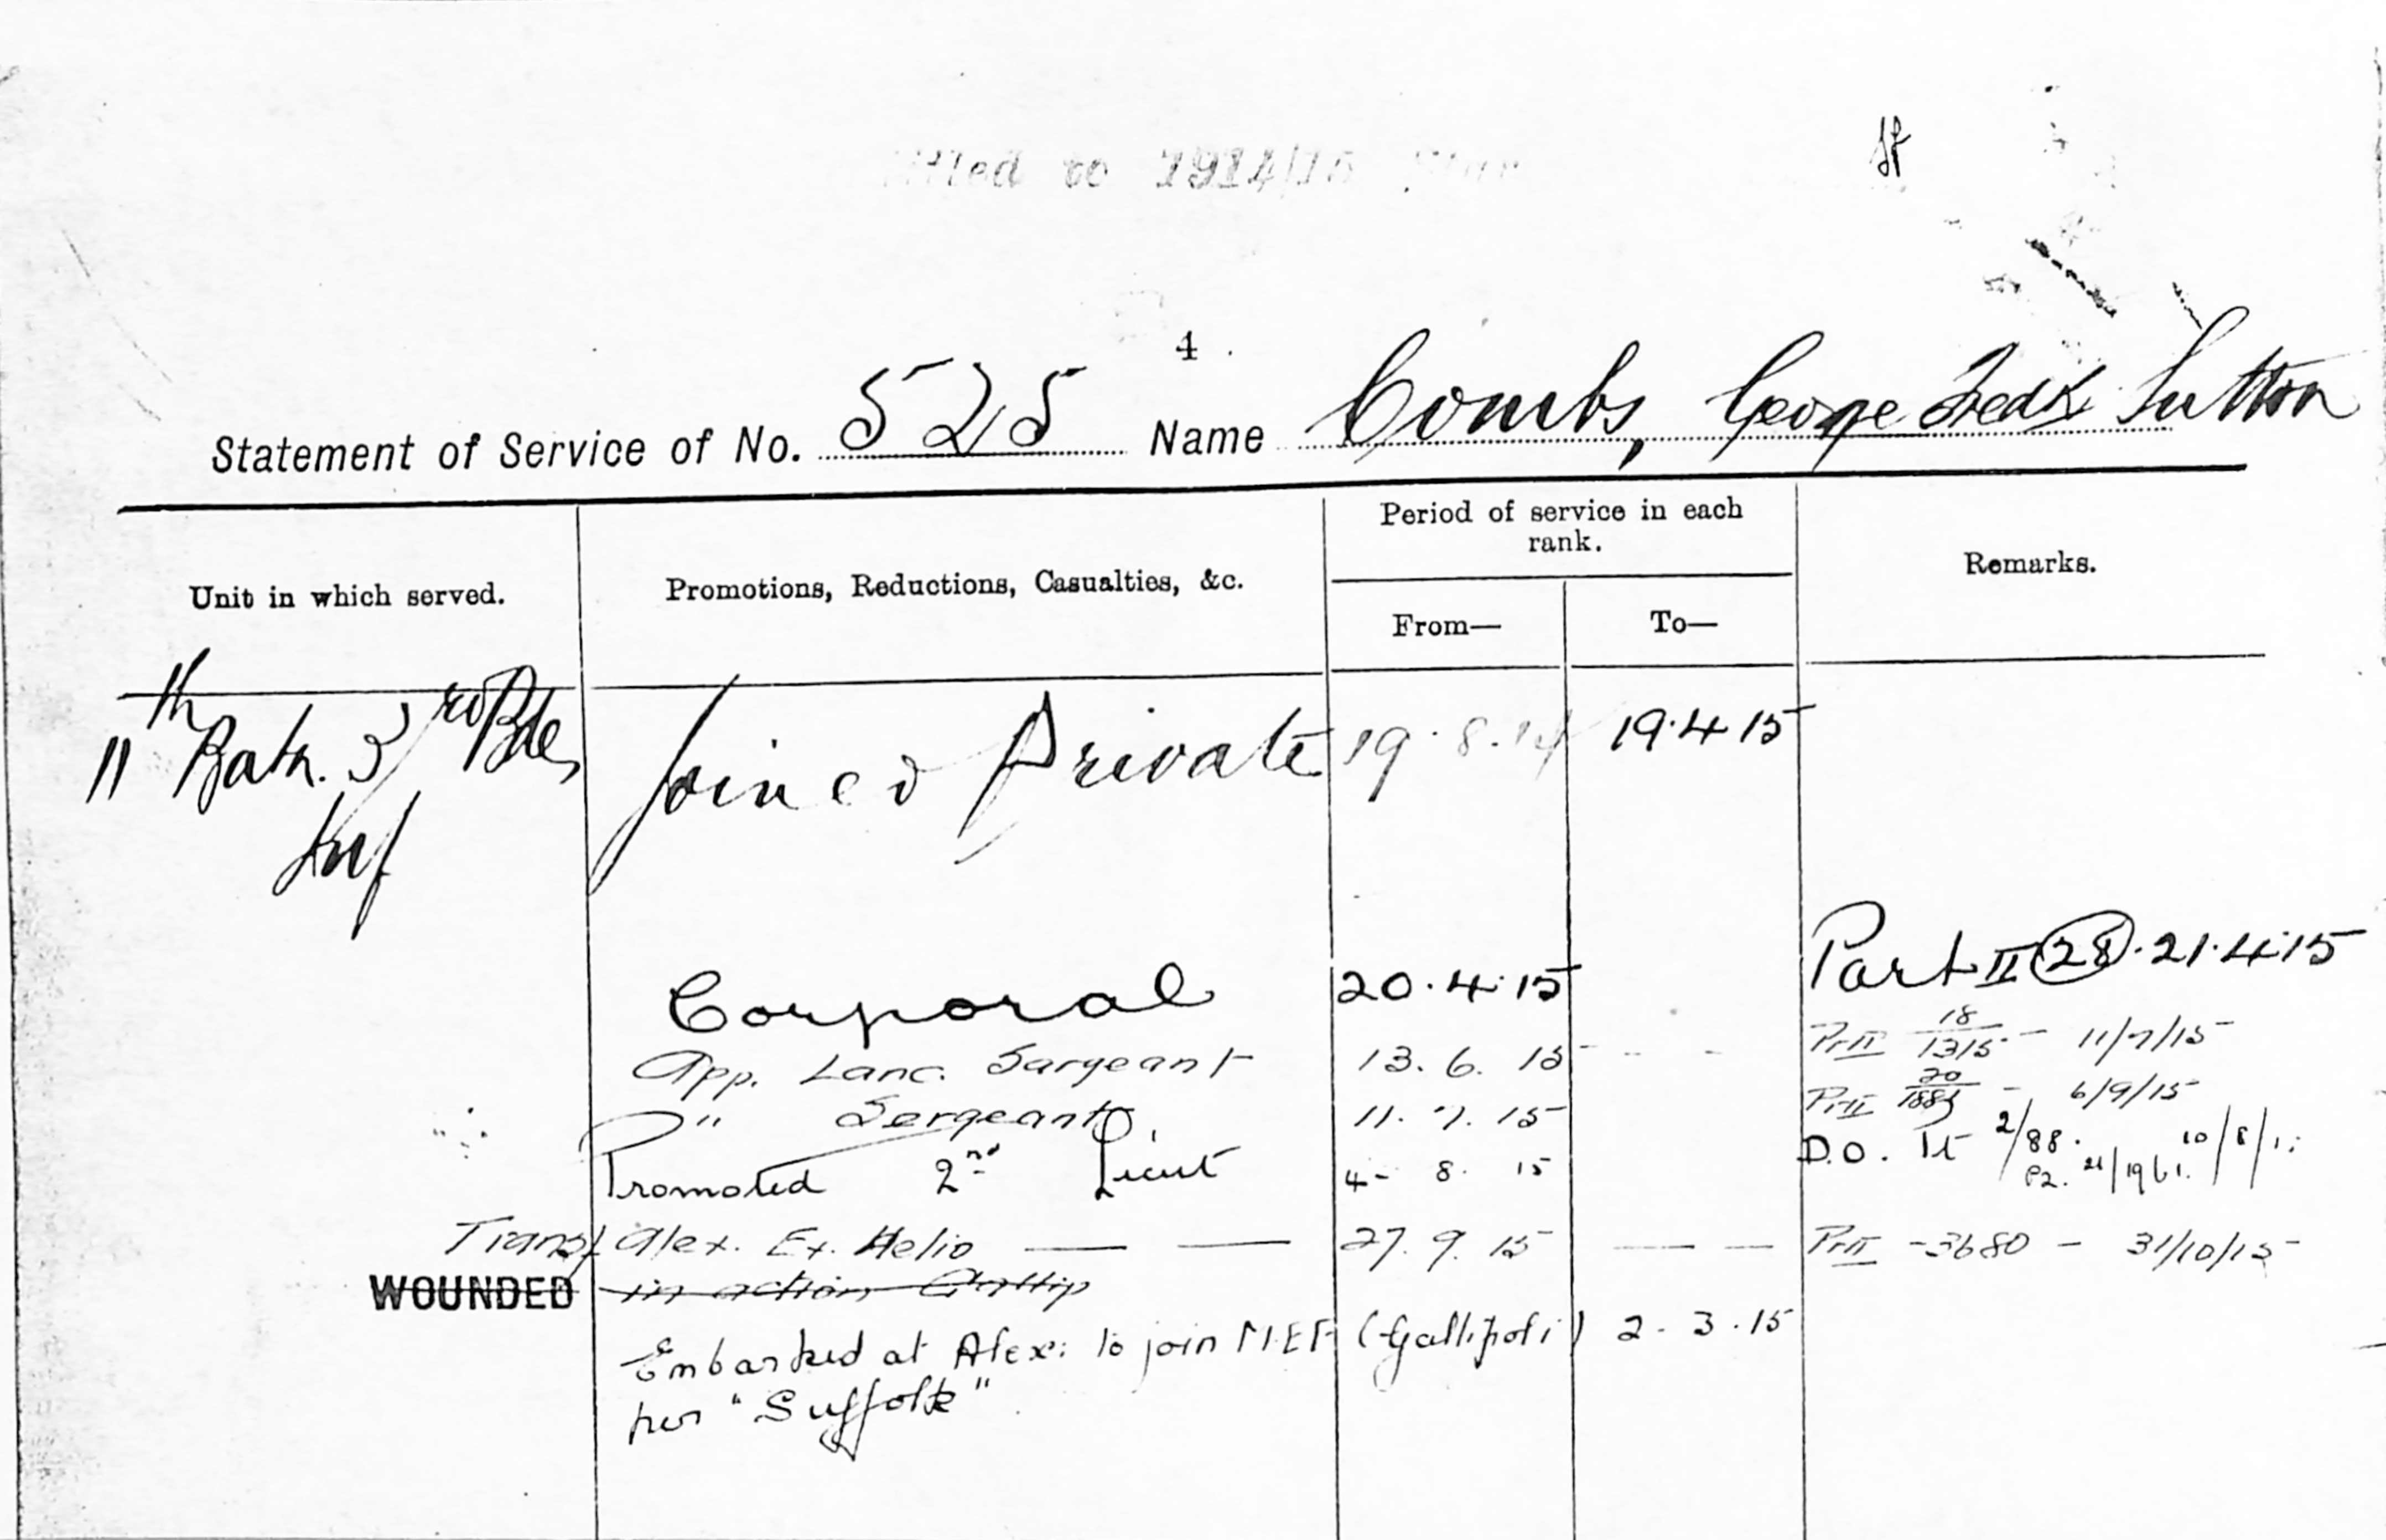 to 1914/15
4
Statement of Service of No. 525 Name Combs, George Fredk Sutton
Unit in which served.
Promotions, Reductions, Casualties, &c.
Period of service in each
rank.
From—
To—
Remarks.
11th Batn. 3rd Bde, Joined Private 19.8.14 19.4.15
Inf
Corporal 20.4.15 Part II 28. 21.4.15
App. Lanc. Sargeant 13.6.15 - - - Pt II 18/1315 - 11/7/15
" Sergeant 11.7.15 Pt II 6/9/15
Promoted 2nd Lieut 4-8.15 D.O.
Transf Alex. Ex. Helio — — 27.9.15 — — Pt II -3680 - 31/10/15
WOUNDED in action
Embarked at Alex: to join MEF (Gallipoli) 2.3.15
per "Suffolk"